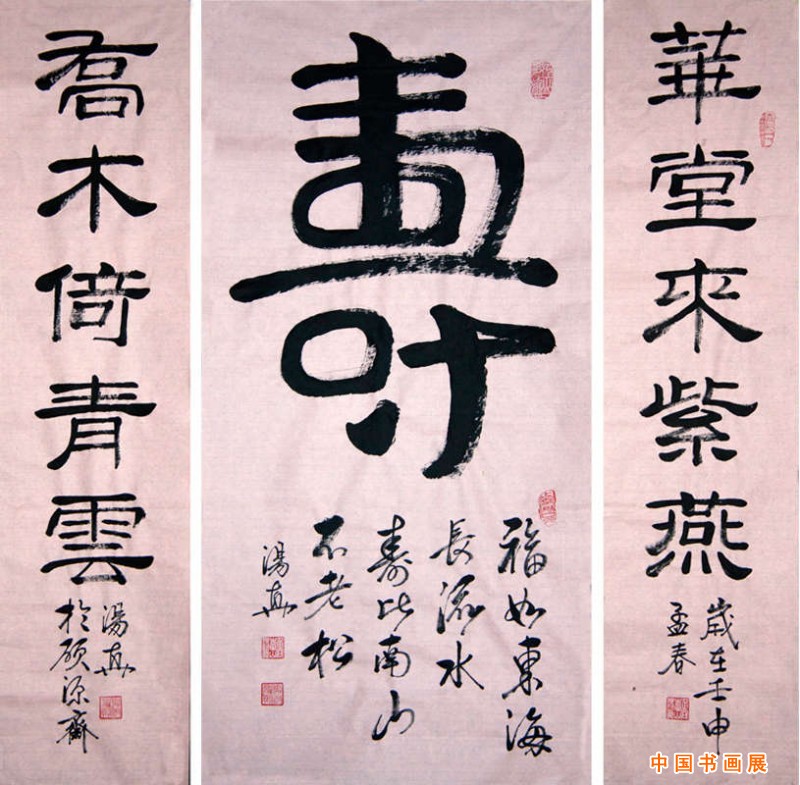 華堂來紫燕
歲在壬申
孟春
壽
福如東海
長流水
壽比南山
不老松
湯真
喬木倚青雲
湯真
於碩源齋
中国书画展